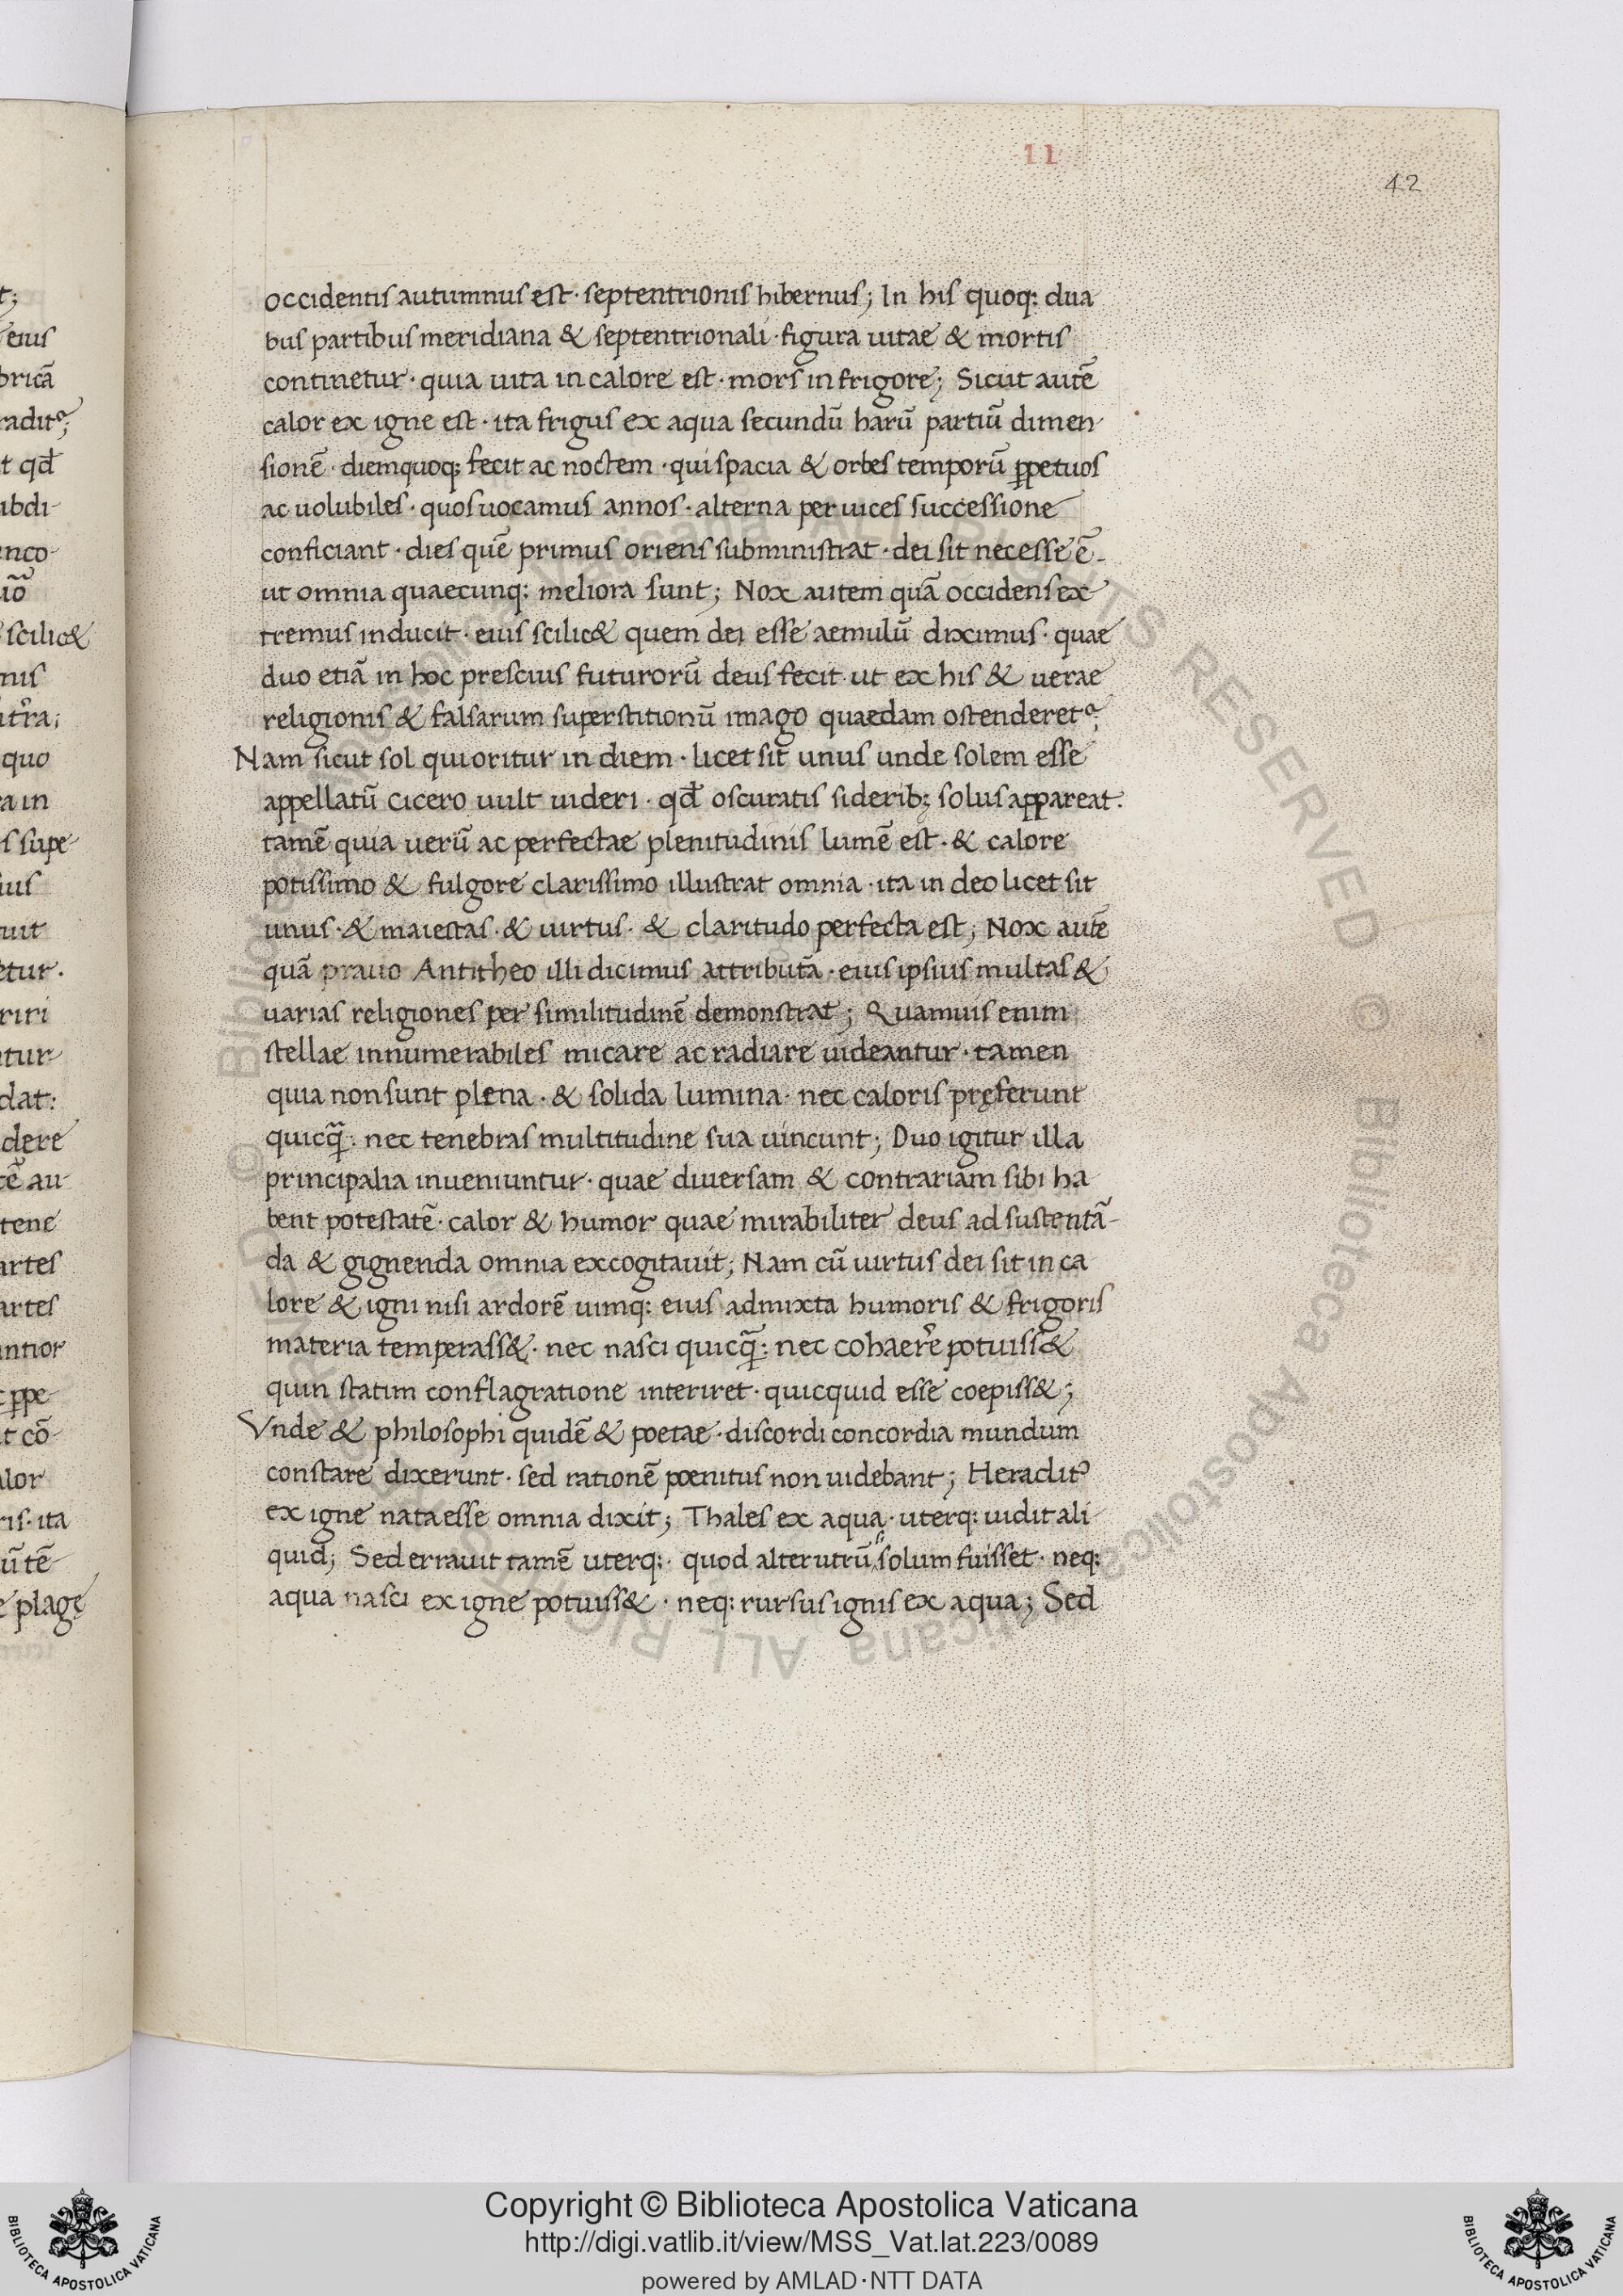 11
42
occidentis autumnus est · septentrionis hibernus; In his quoq: dua
bus partibus meridiana & septentrionali · figura uitae & mortis
continetur · quia uita in calore est · mors in frigore; Sicut autē
calor ex igne est · ita frigus ex aqua secundū harū partiū dimen-
sionē · diemquoq; fecit ac noctem · qui spacia & orbes temporū ꝑpetuos
ac uolubiles · quos uocamus annos · alterna per uices successione
conficiant · dies quē primus oriens subministrat · dei sit necesse ē
ut omnia quaecunq: meliora sunt; Nox autem quā occidens ex
tremus inducit · eius scilic& quem dei esse aemulū diximus · quae
duo etiā in hoc prescius futurorū deus fecit · ut ex his & uerae
religionis & falsarum superstitionū imago quaedam ostenderet᷑;
Nam sicut sol qui oritur in diem · licet sit unus unde solem esse
appellatū Cicero uult uideri · qđ oscuratis siderib; solus appareat.
tamē quia uerū ac perfectae plenitudinis lumē est · & calore
potissimo & fulgore clarissimo illustrat omnia · ita in deo licet sit
unus · & maiestas · & uirtus · & claritudo perfecta est; Nox autē
quā prauo Antitheo illi dicimus attributā · eius ipsius multas &
uarias religiones per similitudinē demonstrat; Quamuis enim
stellae innumerabiles micare ac radiare uideantur · tamen
quia non sunt plena · & solida lumina · nec caloris pręferunt
quicq̄: nec tenebras multitudine sua uincunt; Duo igitur illa
principalia inueniuntur · quae diuersam & contrariam sibi ha
bent potestatē · calor & humor quae mirabiliter deus ad sustentā-
da & gignenda omnia excogitauit; Nam cū uirtus dei sit in ca
lore & igni nisi ardorē uimq: eius admixta humoris & frigoris
materia temperass& · nec nasci quicq̄: nec cohaere᷑ potuiss&
quin statim conflagratione interiret · quicquid esse coepiss&;
Vnde & philosophi quidē & poetae · discordi concordia mundum
constare dixerunt · sed rationē poenitus non uidebant; Heraclitꝰ
ex igne nata esse omnia dixit; Thales ex aqua · uterq: uidit ali-
quid; Sed errauit tamē uterq: · quod alterutrū solum fuisset · neq:
aqua nasci ex igne potuiss& · neq: rursus ignis ex aqua; Sed
Copyright © Biblioteca Apostolica Vaticana
http://digi.vatlib.it/view/MSS_Vat.lat.223/0089
powered by AMLAD·NTT DATA
BIBLIOTECA APOSTOLICA VATICANA
BIBLIOTECA APOSTOLICA VATICANA